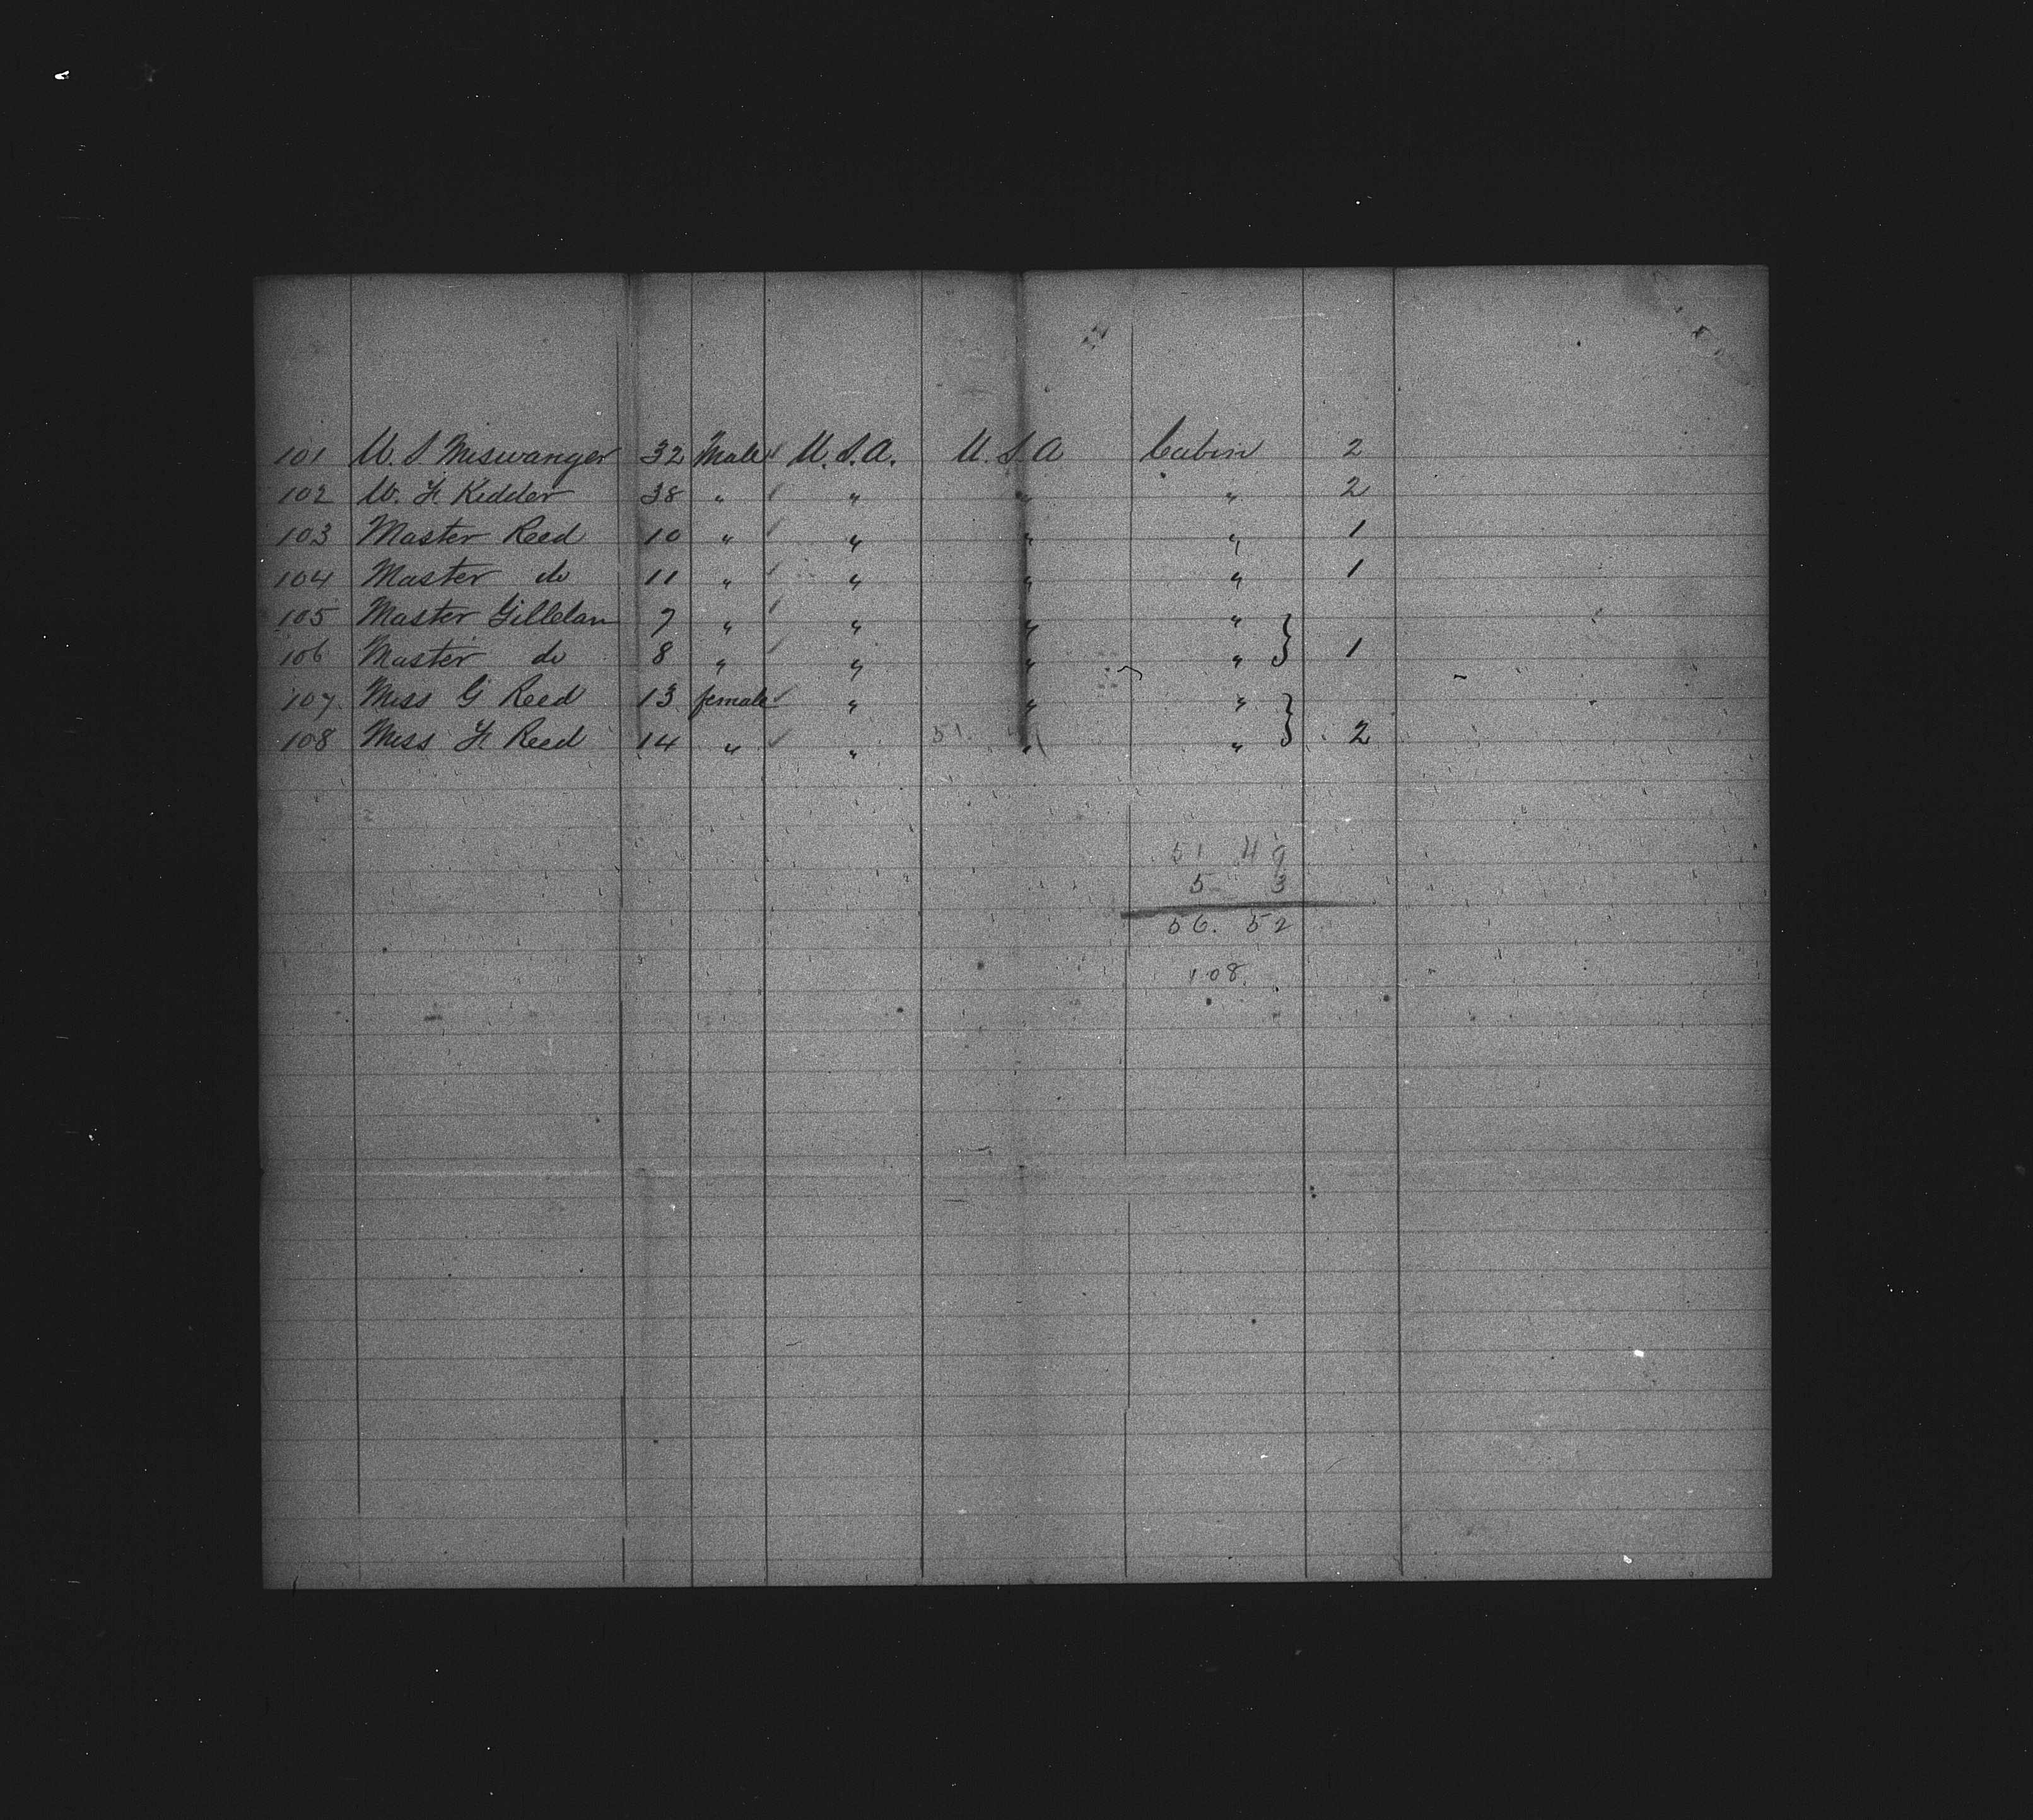 101 W. S. Miswanger 32 Male U.S.A. U.S.A Cabin 2
102 W. H. Kidder 38 " " " " 2
103 Master Reed 10 " " " " 1
104 Master do 11 " " " " 1
105 Master Gillelan 7 " " " "
106 Master do 8 " " " " } 1
107 Miss G Reed 13 female " " "
108 Miss H Reed 14 " " 51. " " } 2
51 49
5 3
56. 52
108.